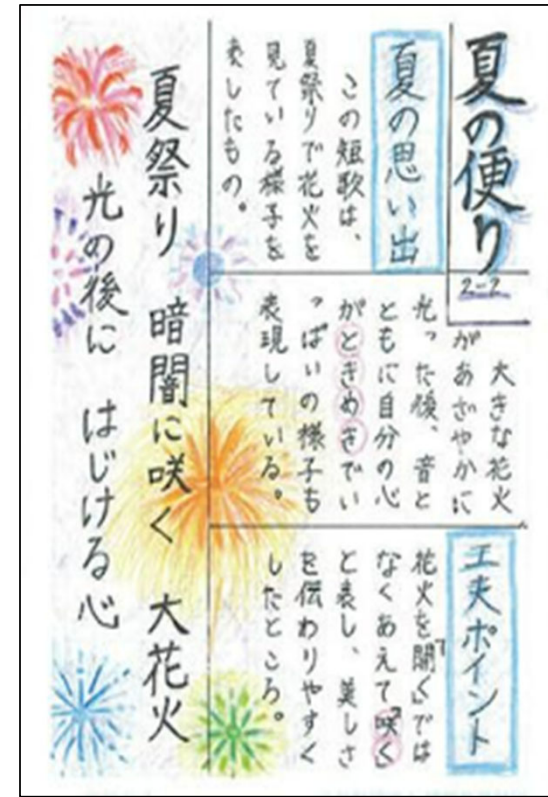 夏の便り
2-2
夏の思い出
この短歌は、
夏祭りで花火を
見ている様子を
表したもの。
大きな花火
があざやかに
光った後、音と
ともに自分の心
がときめきでい
っぱいの様子も
表現している。
工夫ポイント
花火を「開く」では
なくあえて「咲く」
と表し、美しさ
を伝わりやすく
したところ。
夏祭り 暗闇に咲く 大花火
光の後に はじける心